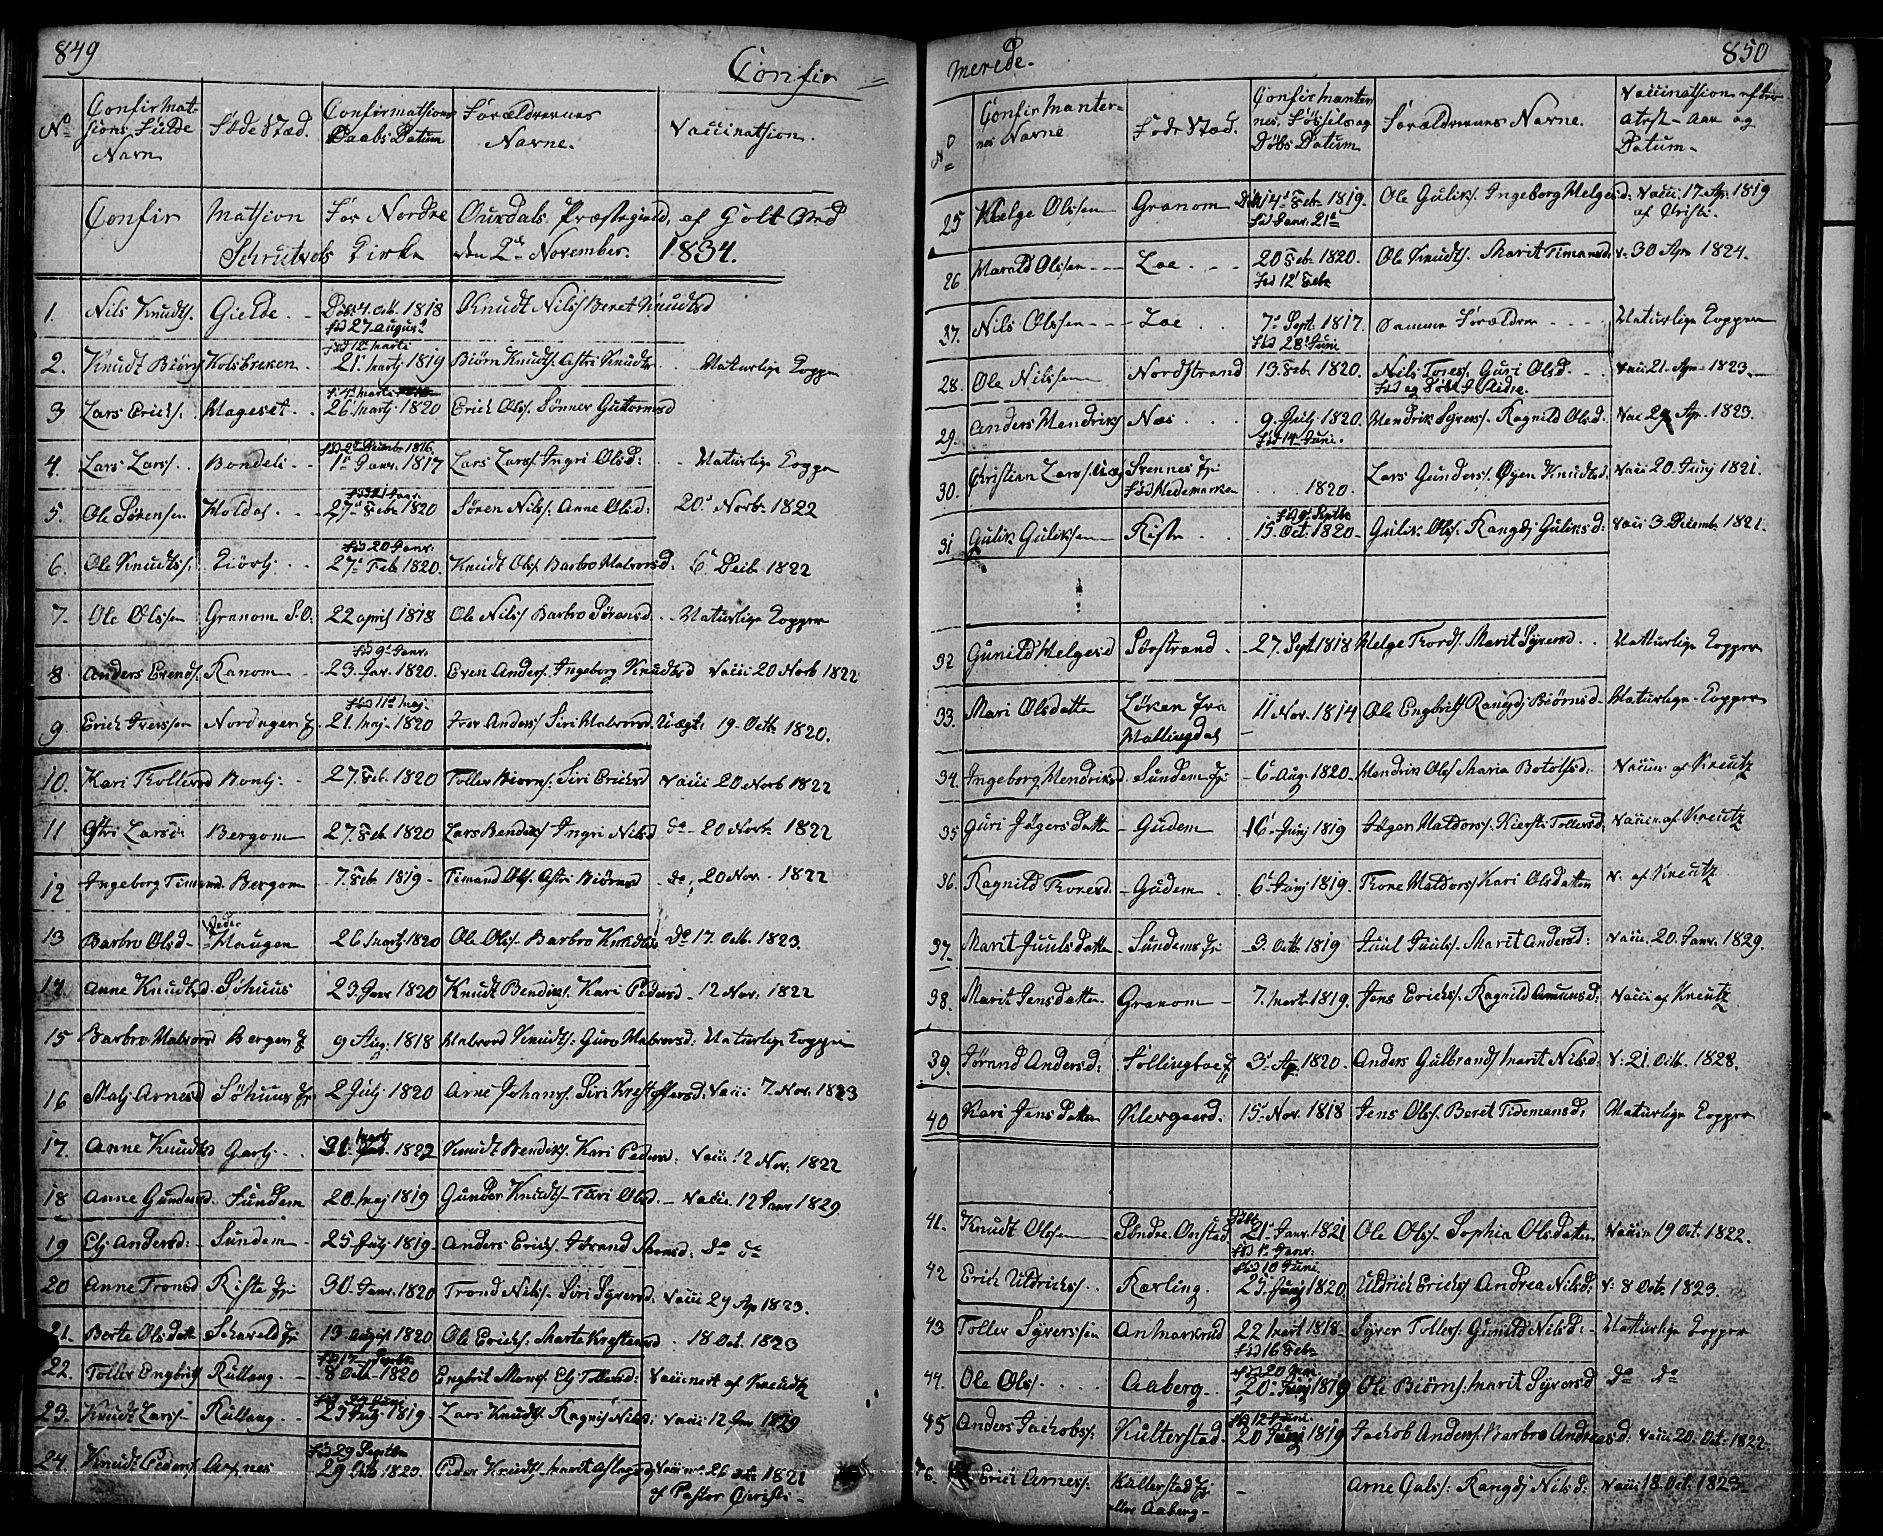 849
Confir =
No
Confirmat-
sions Fulde
Navn
Födested.
Confirmations
Daabs Datum
Forældrernes
Navne.
Vaccination.
Confir Mation For Nordre Ourdals Præstegield, af Holt Ord
Schrutvols Kirke den 2den November. 1834.
1. Nils Knuds. Gielde. Döbt 4. oct. 1818 Knudt Nils/ Beret Knudtsd
fød 27 august
fød 12 Marti
2. Knudt Biörns Kolsbreken. 21. Martj 1819 Biörn Knudts. Astri Knudtsd. Naturlige Kopper
3 Lars Erichs. Hageset. 26 Martj 1820 Erich Ols. Sönner Guttormsd
fød 2den Decemb 1816
4. Lars Lars. Bondeli 1. Janr. 1817 Lars Lars/ Ingri Olsd: Naturlige Kopper
5. Ole Sörensen Holdal 27 Febr 1820 Sören Nils: Anne Olsd: 20. Novb. 1822
fød 20 Janr.
6. Ole Knudts. 27 Feb 1820. Knudt Ols/ Barbro Halvorsd. 6. Decb 1822
7. Ole Olssen Granom S.O: 22 april 1818 Ole Nils/ Barbro Sörensd. Naturlige Kopper
fød 9. Janr.
8 Anders Evends. Ranom 23. Jan. 1820. Even Anders. Ingeborg Knudtsd Vacci 20 Novb 1822
fød 11 Maj.
9 Erich Iverssen Nordagen 21. Maj. 1820 Iver Anders/ Siri Halvorsd. 19. Octb 1820.
10. Kari Tollevsd Bontj. 27. Feb. 1820 Toller Biörns. Siri Erichsd Vacci 20 Novb 1822
11 Astri Larsd: Bergom 27. Feb. 1820 Lars Bendiks/ Ingri Nilsd do - 20 Novb. 1822
12 Ingeborg Timand. Bergom 7. Feb 1819 Timand Ols. Astri Biörnsd do, 20 Nov. 1822
13 Barbro Olsd. Haugen 26 Martj 1820 Ole Ols. Barbro Knudts. Do 17. Octb. 1823.
14. Anne Knudtsd. Sohuus 23. Janr 1820 Knudt Bendiks. Kari Pedersd. 12 Nov. 1822
15 Barbro Halvorsd Bergen 9 Aug. 1818 Halvord Knudts: Guro Halvorsd: Naturlige Kopper
16 Malj Arnesd Söhuus 2 Julij 1820 Arne Johans/. Siri Krestoffersd. Vacci 7. Nov. 1823
17. Anne Knudtsd Gartj 1822 Knudt Bendiks. Kari Pedersd: Vacci 12 Nov. 1822
18 Anne Gundersd. Sundem 20. Maj 1819 Gunder Knudts. Turi Olsd. Vacci. 12 Janr 1829
19 Elj. Andersd: Sundem 25 Julij 1819. Anders Erichs. Do do
20 Anne Tronsd Riste 30. Janr. 1820 Trond Nils. Siri Syversd. Vacci 24 Ap 1823.
21. Berte Olsdatter 13 august 1820 Ole Erichs: Marte Krestensd 18 Oct. 1823
22. Toller Engbrits Rullang. 8 Octb. 1820 Engbrit Mons. Elj Tollersd: Vaccinert af Kreutz
23. Knudt Larss. Rullang 25 Julij 1819. Lars Knudts. Ragnild Nilsd: Vacci 12 Janr 1829
fød 29 Septbr
24. Knudt Peders. Axnes 29 Octb. 1820. Peder Knudts. Marit Aslagsd 26 oct. 1821
af Pastor Christi
850
merede.
No
Confirmanter-
nes Navne
Födested.
Confirmanter-
nes, Födsels og
Döbs Datum
Forældrernes Navne.
Vaccination efter
Atest - Aar og
Datum.
25 Helge Olssen Granom Döbt 14. Feb. 1819. Ole Guliks. Ingeborg Helgesd: Vacci. 17. Ap. 1819
fød Janr. 21de af Christi.
26 Harald Olssen Loe. 20 Feb. 1820. Ole Knudts. Marit Timansd. v. 30 Apr 1824.
fød 12 Febr
37. Nils Olssen Loe 7. Sept. 1817. Samme Forældre Naturlige Kopper
fød 28 Juni
28. Ole Nilssen Nordstrand 13. Feb. 1820. Nils Tores. Guri Olsd. Vacci 21. Apr. 1823.
29. Anders Hendriks Næs 9. Julij 1820. Hendrik Syvers. Ragnild Olsd. Vac 29 Ap. 1823.
fød 14 Juni.
30. Christian Lars. Svennes
fød Hedemarken 1820. Lars Gunders. Knudtsd. Vacci 20. Junij 1821.
31 Gulik Guliksen Riste 15. Oct. 1820. Gulik Ols. Rangdj Guliksd: Vacci 3. Decemb. 1821.
32 Gunild Helgesd Sörstrand. 27. Sept 1818 Helge Tords. Marit Syversd. Natturlige Kopper
33. Mari Olsdatter Löken fra
Hallingdal 11 Nov. 1814 Ole Engbrits. Rangdj Biörnsd. Naturlige Kopper
34. Ingeborg Hendriksd. Sundem 6. Aug. 1820. Hendrik Ols. Maria Botolfsd: Vacci. af Kreutz
35 Guri Jögersdatter Gudem 16. Junj 1819 Jöger Haldors. Kiersti Tollersd: Vacci. af Kreutz
36. Ragnild Toresd. Gudem 6. Junj 1819. Tore Haldors/ Kari Olsdatter v. af Kreutz
37. Marit Juulsdatter Sundem 3. Octb. 1819 Juul Juuls. Marit Andersd: Vacci. 20. Janr. 1829.
38. Marit Jensdatter Granom 7. Mart. 1819. Jens Erichs. Ragnild Amunsd: Vacci af Kreutz
39. Jörand Andersd: 3. Ap. 1820. Anders Gulbrands. Marit Nilsd: v: 21. Octb. 1828.
40 Kari Jensdatter Klevgaard. 15. Nov. 1818 Jens Ols. Berit Tidemansd. Naturlige Kopper
41. Knudt Olsen Söndre. Onstad 21. Janr. 1821 Ole Ols. Sophia Olsdatter Vacci. 19 Oct. 1822.
fød 1. Janr.
fød 10 Juni.
42 Erich Uldrichs. Kærling. 25. Junij 1820 Uldrich Erichs/ Andrea Nilsd: v. 8 Octr. 1823.
43 Toller Syverssen Anmarkrud 22 Mart 1818 Syver Tollers. Gunild Nilsd: Natturlige Kopper
fød 16 Febr
44. Ole Ols. Aaberg. 20. Junij 1819 Ole Biörns. Marit Syversd do do
fød 12 Juni.
45 Anders Jachobs. Kulterstad. 20 Junij 1819 Jachob Anders. Barbro Andersd: Vacci 20. Oct. 1822.
46. Erich Arness: Kulterstad
eller Aaberg Arne Rangdj Nilsd: Vacci 18. Oct. 1823.